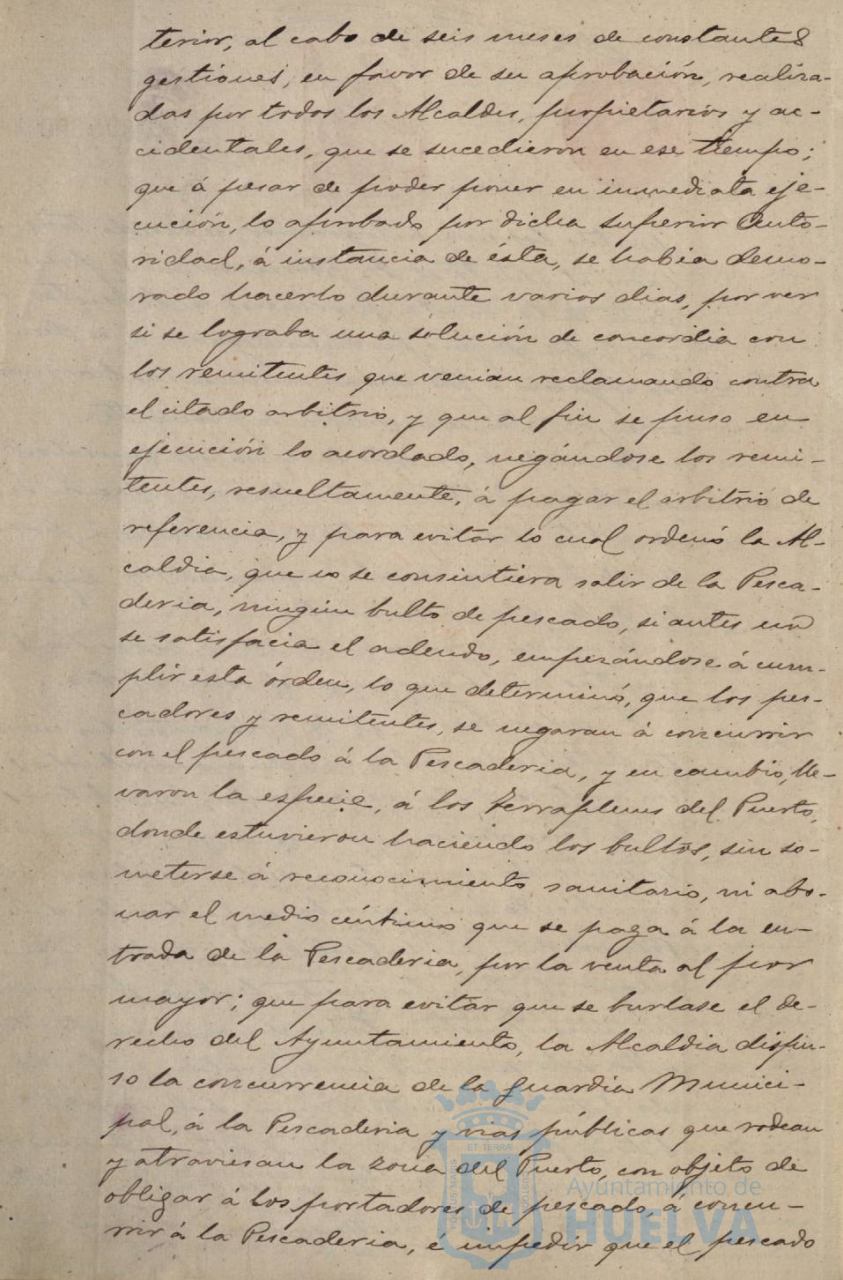 terior, al cabo de seis meses de constantes
gestiones, en favor de su aprobación, realiza-
das por todos los Alcaldes, propietarios y ac-
cidentales, que se sucedieron en ese tiempo;
que á pesar de poder poner en inmediata eje-
cución, lo aprobado por dicha superior Auto-
ridad, á instancia de ésta, se habia demo-
rado hacerlo durante varios dias, por ver
si se lograba una solución de concordia con
los remitentes que venian reclamando contra
el citado arbitrio, y que al fin se puso en
ejecución lo acordado, negándose los remi-
tentes, resueltamente, á pagar el arbitrio de
referencia, y para evitar lo cual ordenó la Al-
caldia, que no se consintiera salir de la Pesca-
deria, ningún bulto de pescado, si antes no
se satisfacia el adeudo, empezándose á cum-
plir esta órden, lo que determinó, que los pes-
cadores y remitentes, se negaran á concurrir
con el pescado á la Pescaderia, y en cambio, lle-
varon la especie, á los terraplenes del Puerto,
donde estuvieron haciendo los bultos, sin so-
meterse á reconocimiento sanitario, ni abo-
nar el medio céntimo que se paga á la en-
trada de la Pescaderia, por la venta al por
mayor; que para evitar que se burlase el de-
recho del Ayuntamiento, la Alcaldia dispu-
so la concurrencia de la guardia Munici-
pal, á la Pescaderia y vias públicas que rodean
y atraviesan la zona del Puerto, con objeto de
obligar á los portadores de pescado á concu-
rrir á la Pescaderia, é impedir que el pescado
Ayuntamiento de
HUELVA